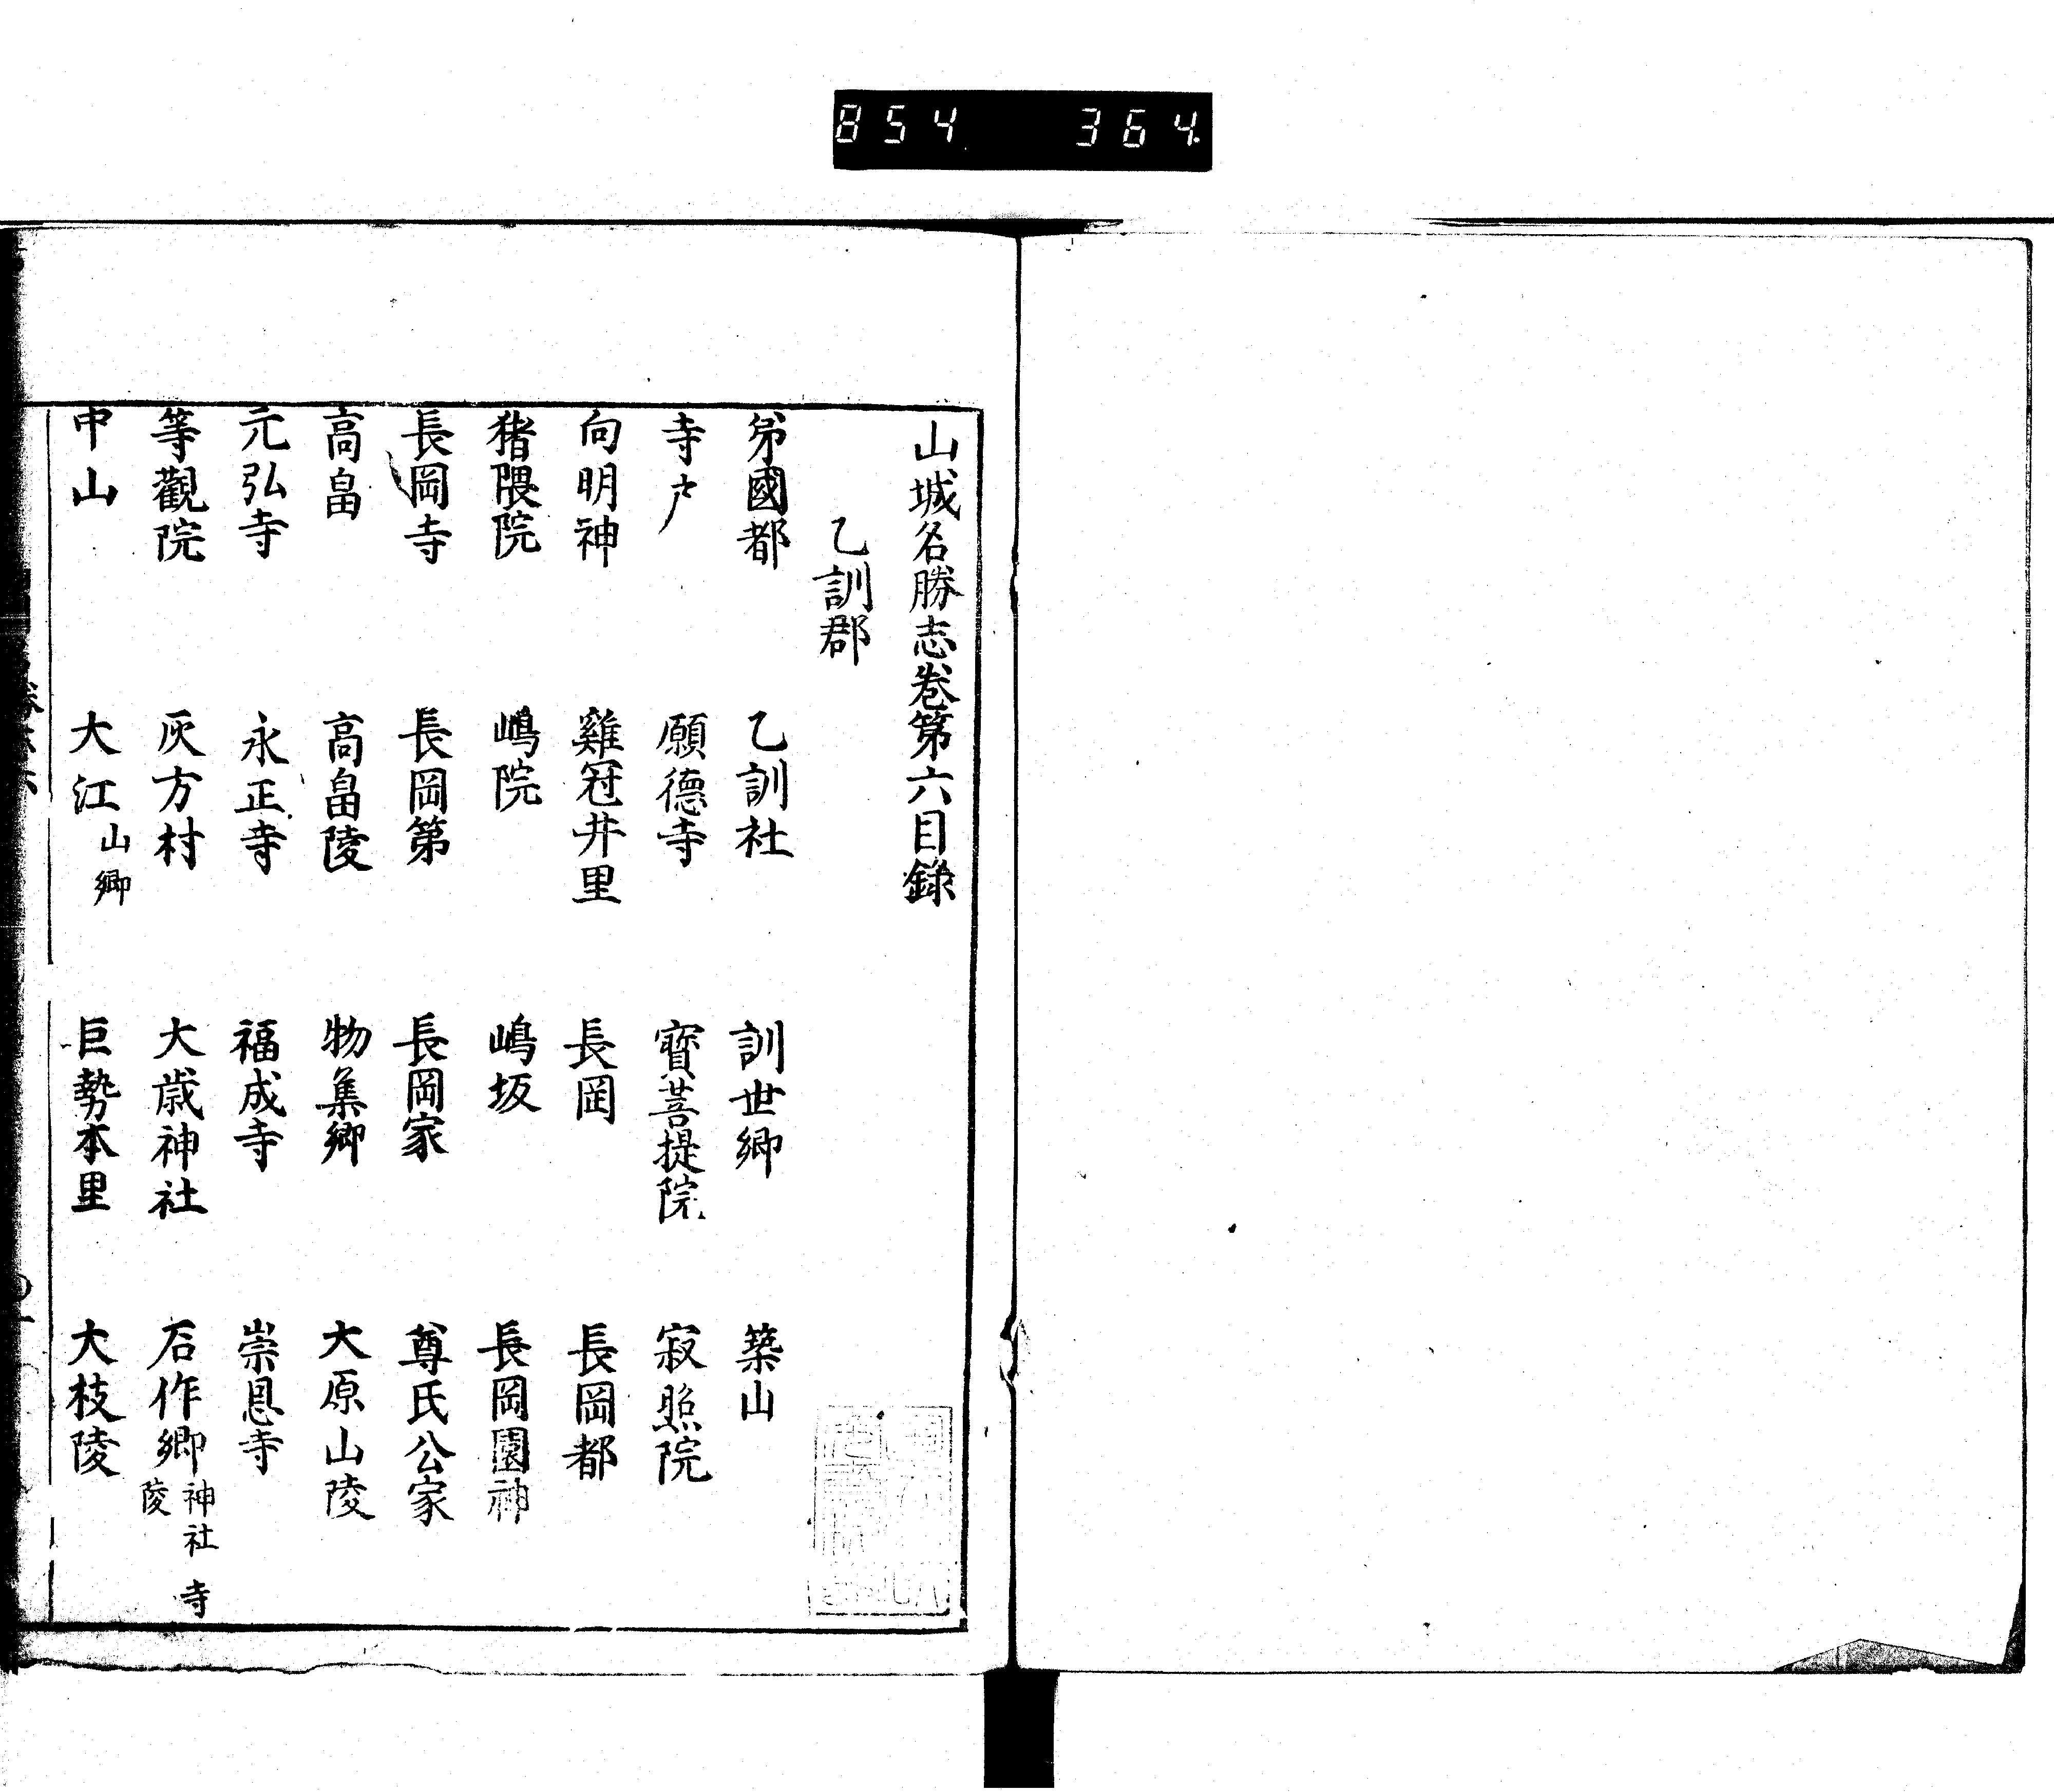 854 364
山城名勝志卷第六目錄
乙訓郡
弟國都 乙訓社 訓世鄉 築山
寺戶 願德寺 寶菩提院 寂照院
向明神 雞冠井里 長岡 長岡都
猪隈院 嶋院 嶋坂 長岡園神
長岡寺 長岡第 長岡冢 尊氏公冢
高畠 高畠陵 物集鄉 大原山陵
元弘寺 永正寺 福成寺 崇恩寺
等觀院 灰方村 大歳神社 石作鄉 神社 寺 陵
中山 大江 山 鄉 巨勢本里 大枝陵